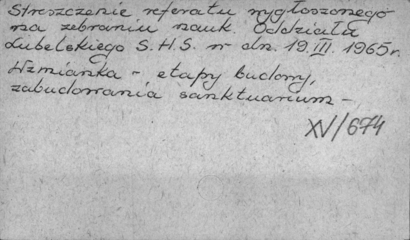 Streszczenie referatu wygłoszonego
na zebraniu nauk. Oddziału
Lubelskiego S.H.S. w dn. 19.III.1965r.
Wzmianka - etapy budowy,
zabudowania sanktuarium -
XV/674